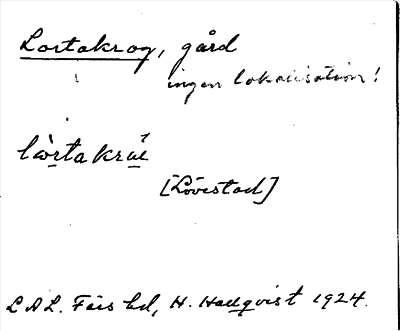 Lortakrog, gård
ingen lokalisation!
[Lövestad]
L.A.L. Färs hd, H. Hallqvist 1924.